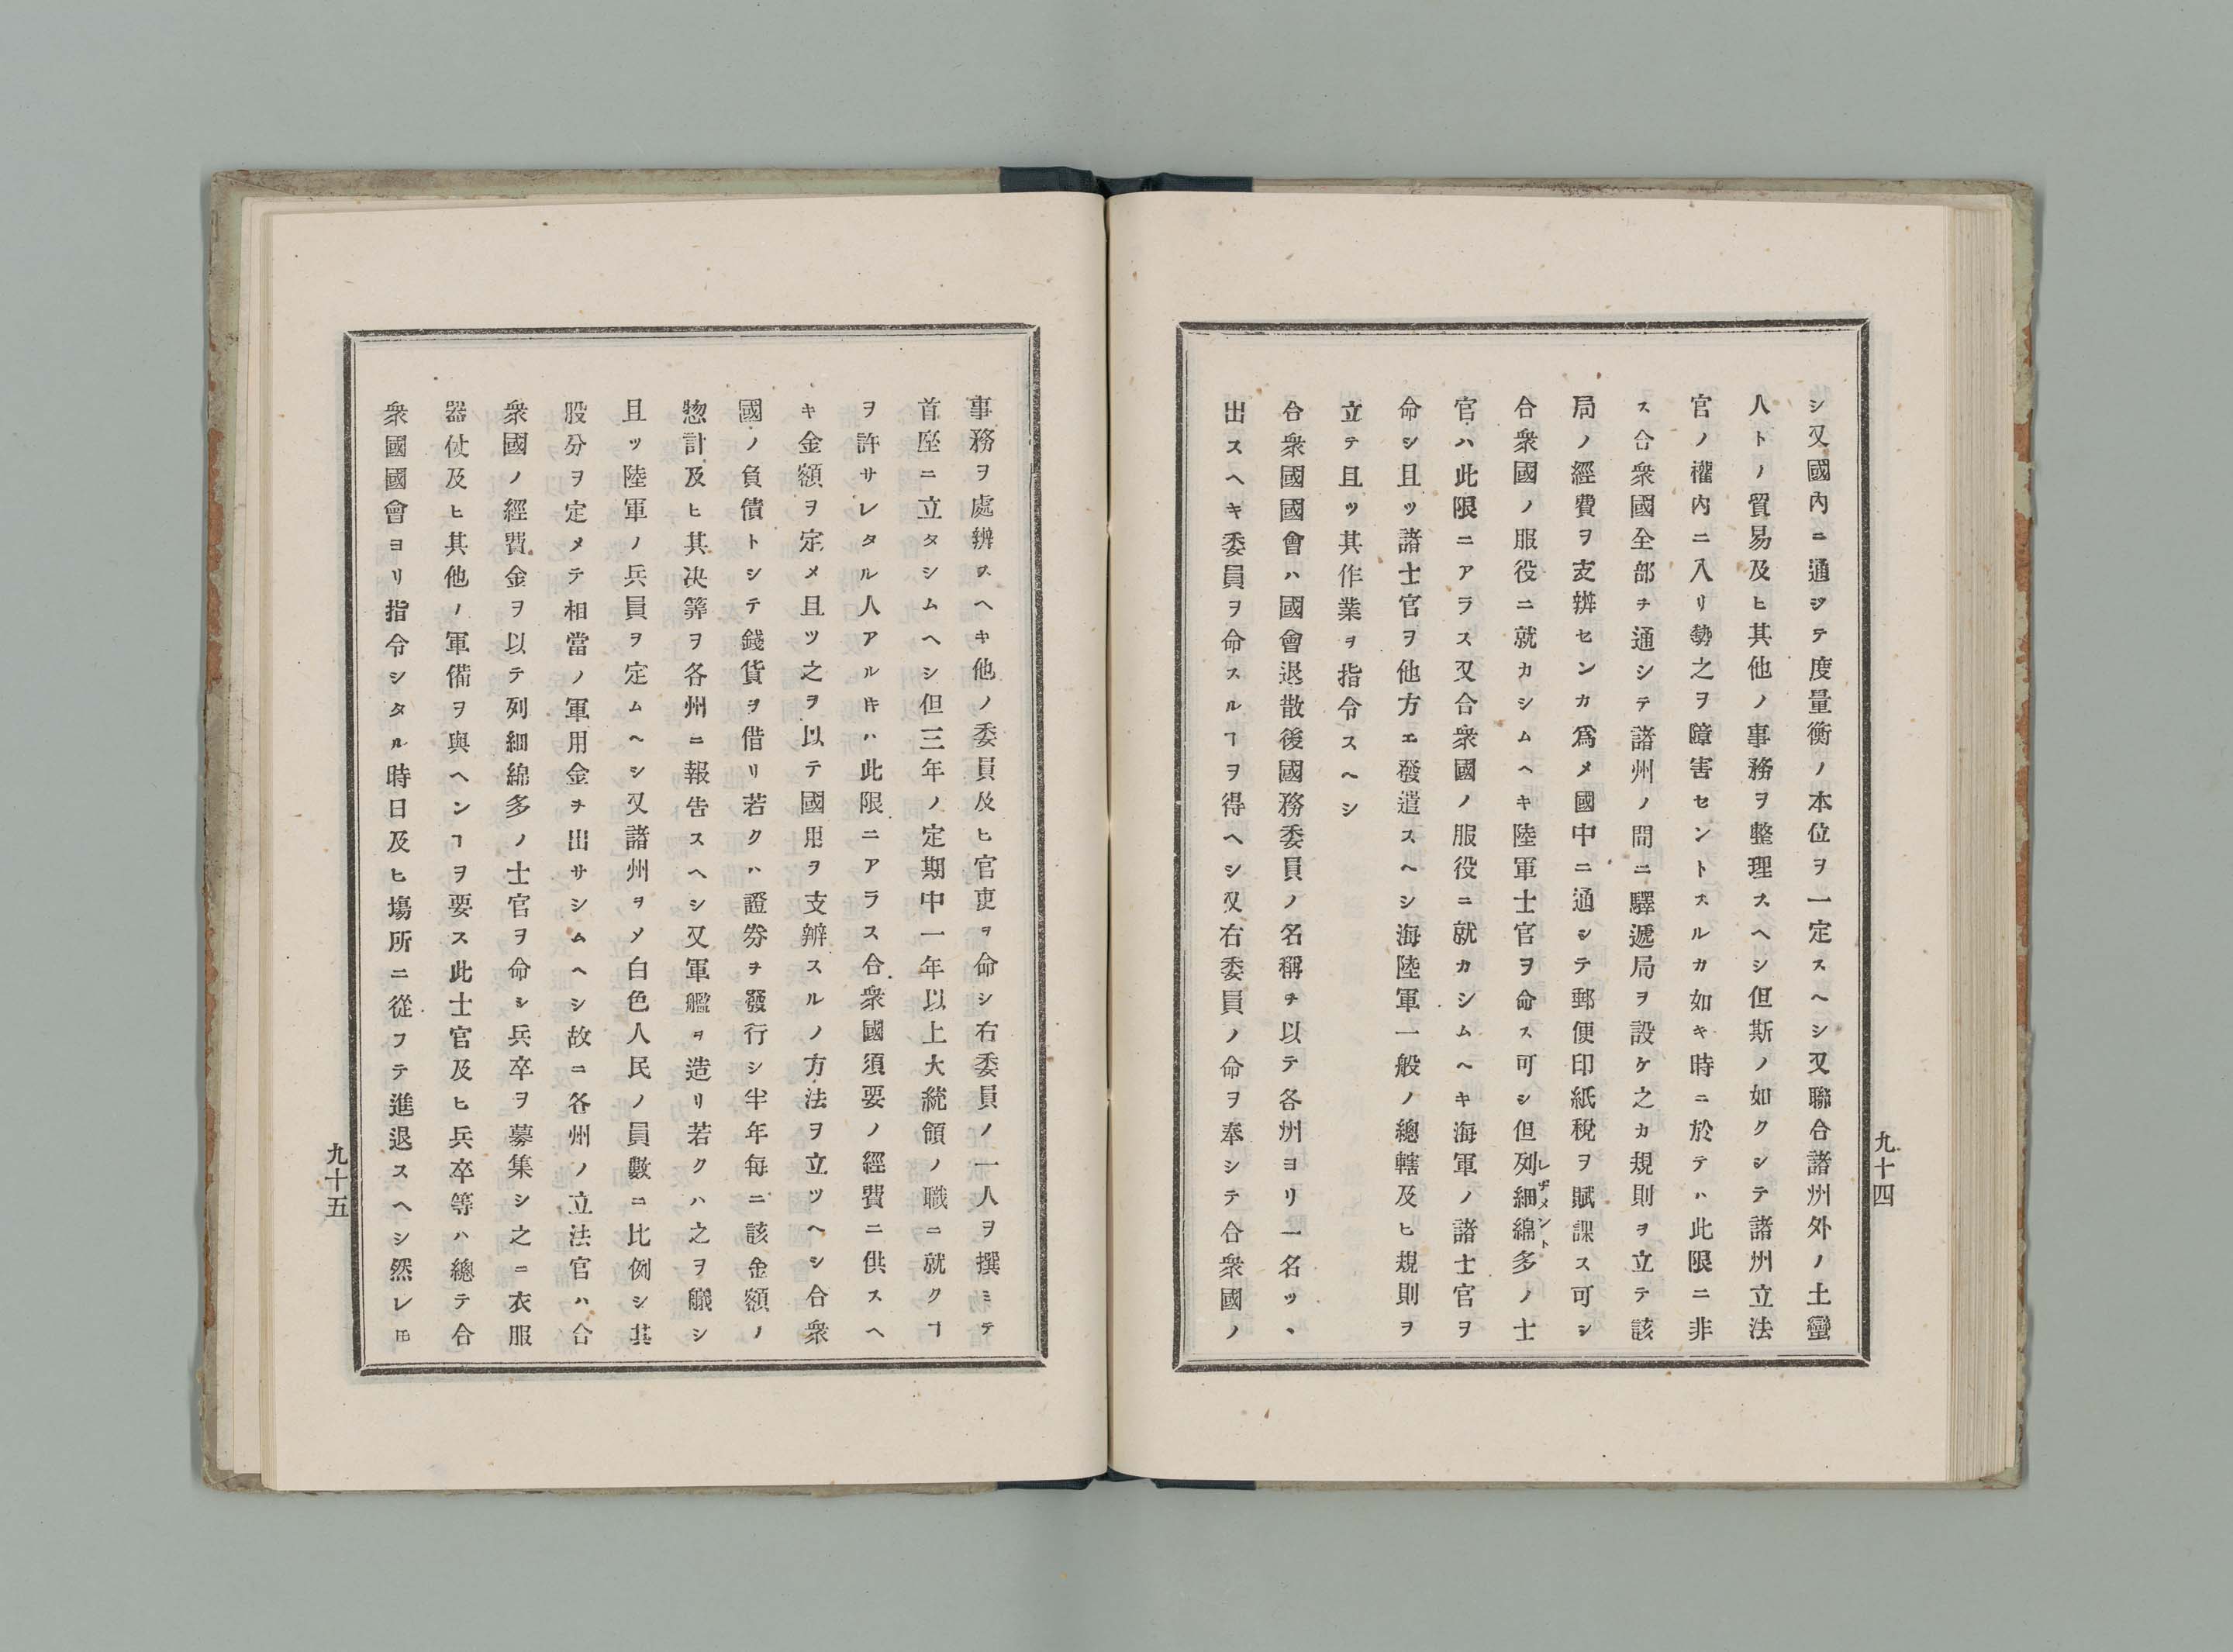 シ又國內ニ通シテ度量衡ノ本位ヲ一定スヘシ又聯合諸州外ノ土蠻
人トノ貿易及ヒ其他ノ事務ヲ整理スヘシ但斯ノ如クシテ諸州立法
官ノ權內ニ入リ勢之ヲ障害セントスルカ如キ時ニ於テハ此限ニ非
ス合衆國全部ヲ通シテ諸州ノ間ニ驛遞局ヲ設ケ之カ規則ヲ立テ該
局ノ經費ヲ支辨センカ爲メ國中ニ通シテ郵便印紙稅ヲ賦課ス可シ
合衆國ノ服役ニ就カシムヘキ陸軍士官ヲ命ス可シ但列細綿多ノ士
レヂメント
官ハ此限ニアラス又合衆國ノ服役ニ就カシムヘキ海軍ノ諸士官ヲ
命シ且ツ諸士官ヲ他方エ發遣スヘシ海陸軍一般ノ總轄及ヒ規則ヲ
立テ且ツ其作業ヲ指令スヘシ
合衆國國會ハ國會退散後國務委員ノ名稱ヲ以テ各州ヨリ一名ツヽ
出スヘキ委員ヲ命スルヿヲ得ヘシ又右委員ノ命ヲ奉シテ合衆國ノ
九十四
事務ヲ處辨スヘキ他ノ委員及ヒ官吏ヲ命シ右委員ノ一人ヲ撰ミテ
首座ニ立タシムヘシ但三年ノ定期中一年以上大統領ノ職ニ就クヿ
ヲ許サレタル人アルㇳキハ此限ニアラス合衆國須要ノ經費ニ供スヘ
キ金額ヲ定メ且ツ之ヲ以テ國用ヲ支辨スルノ方法ヲ立ツヘシ合衆
國ノ負債トシテ錢貨ヲ借リ若クハ證券ヲ發行シ半年每ニ該金額ノ
惣計及ヒ其决筭ヲ各州ニ報告スヘシ又軍艦ヲ造リ若クハ之ヲ艤シ
且ツ陸軍ノ兵員ヲ定ムヘシ又諸州ヲソ白色人民ノ員數ニ比例シ其
股分ヲ定メテ相當ノ軍用金ヲ出サシムヘシ故ニ各州ノ立法官ハ合
衆國ノ經費金ヲ以テ列細綿多ノ士官ヲ命シ兵卒ヲ募集シ之ニ衣服
器仗及ヒ其他ノ軍備ヲ與ヘンヿヲ要ス此士官及ヒ兵卒等ハ總テ合
衆國國會ヨリ指令シタル時日及ヒ塲所ニ從フテ進退スヘシ然レㇳモ
九十五